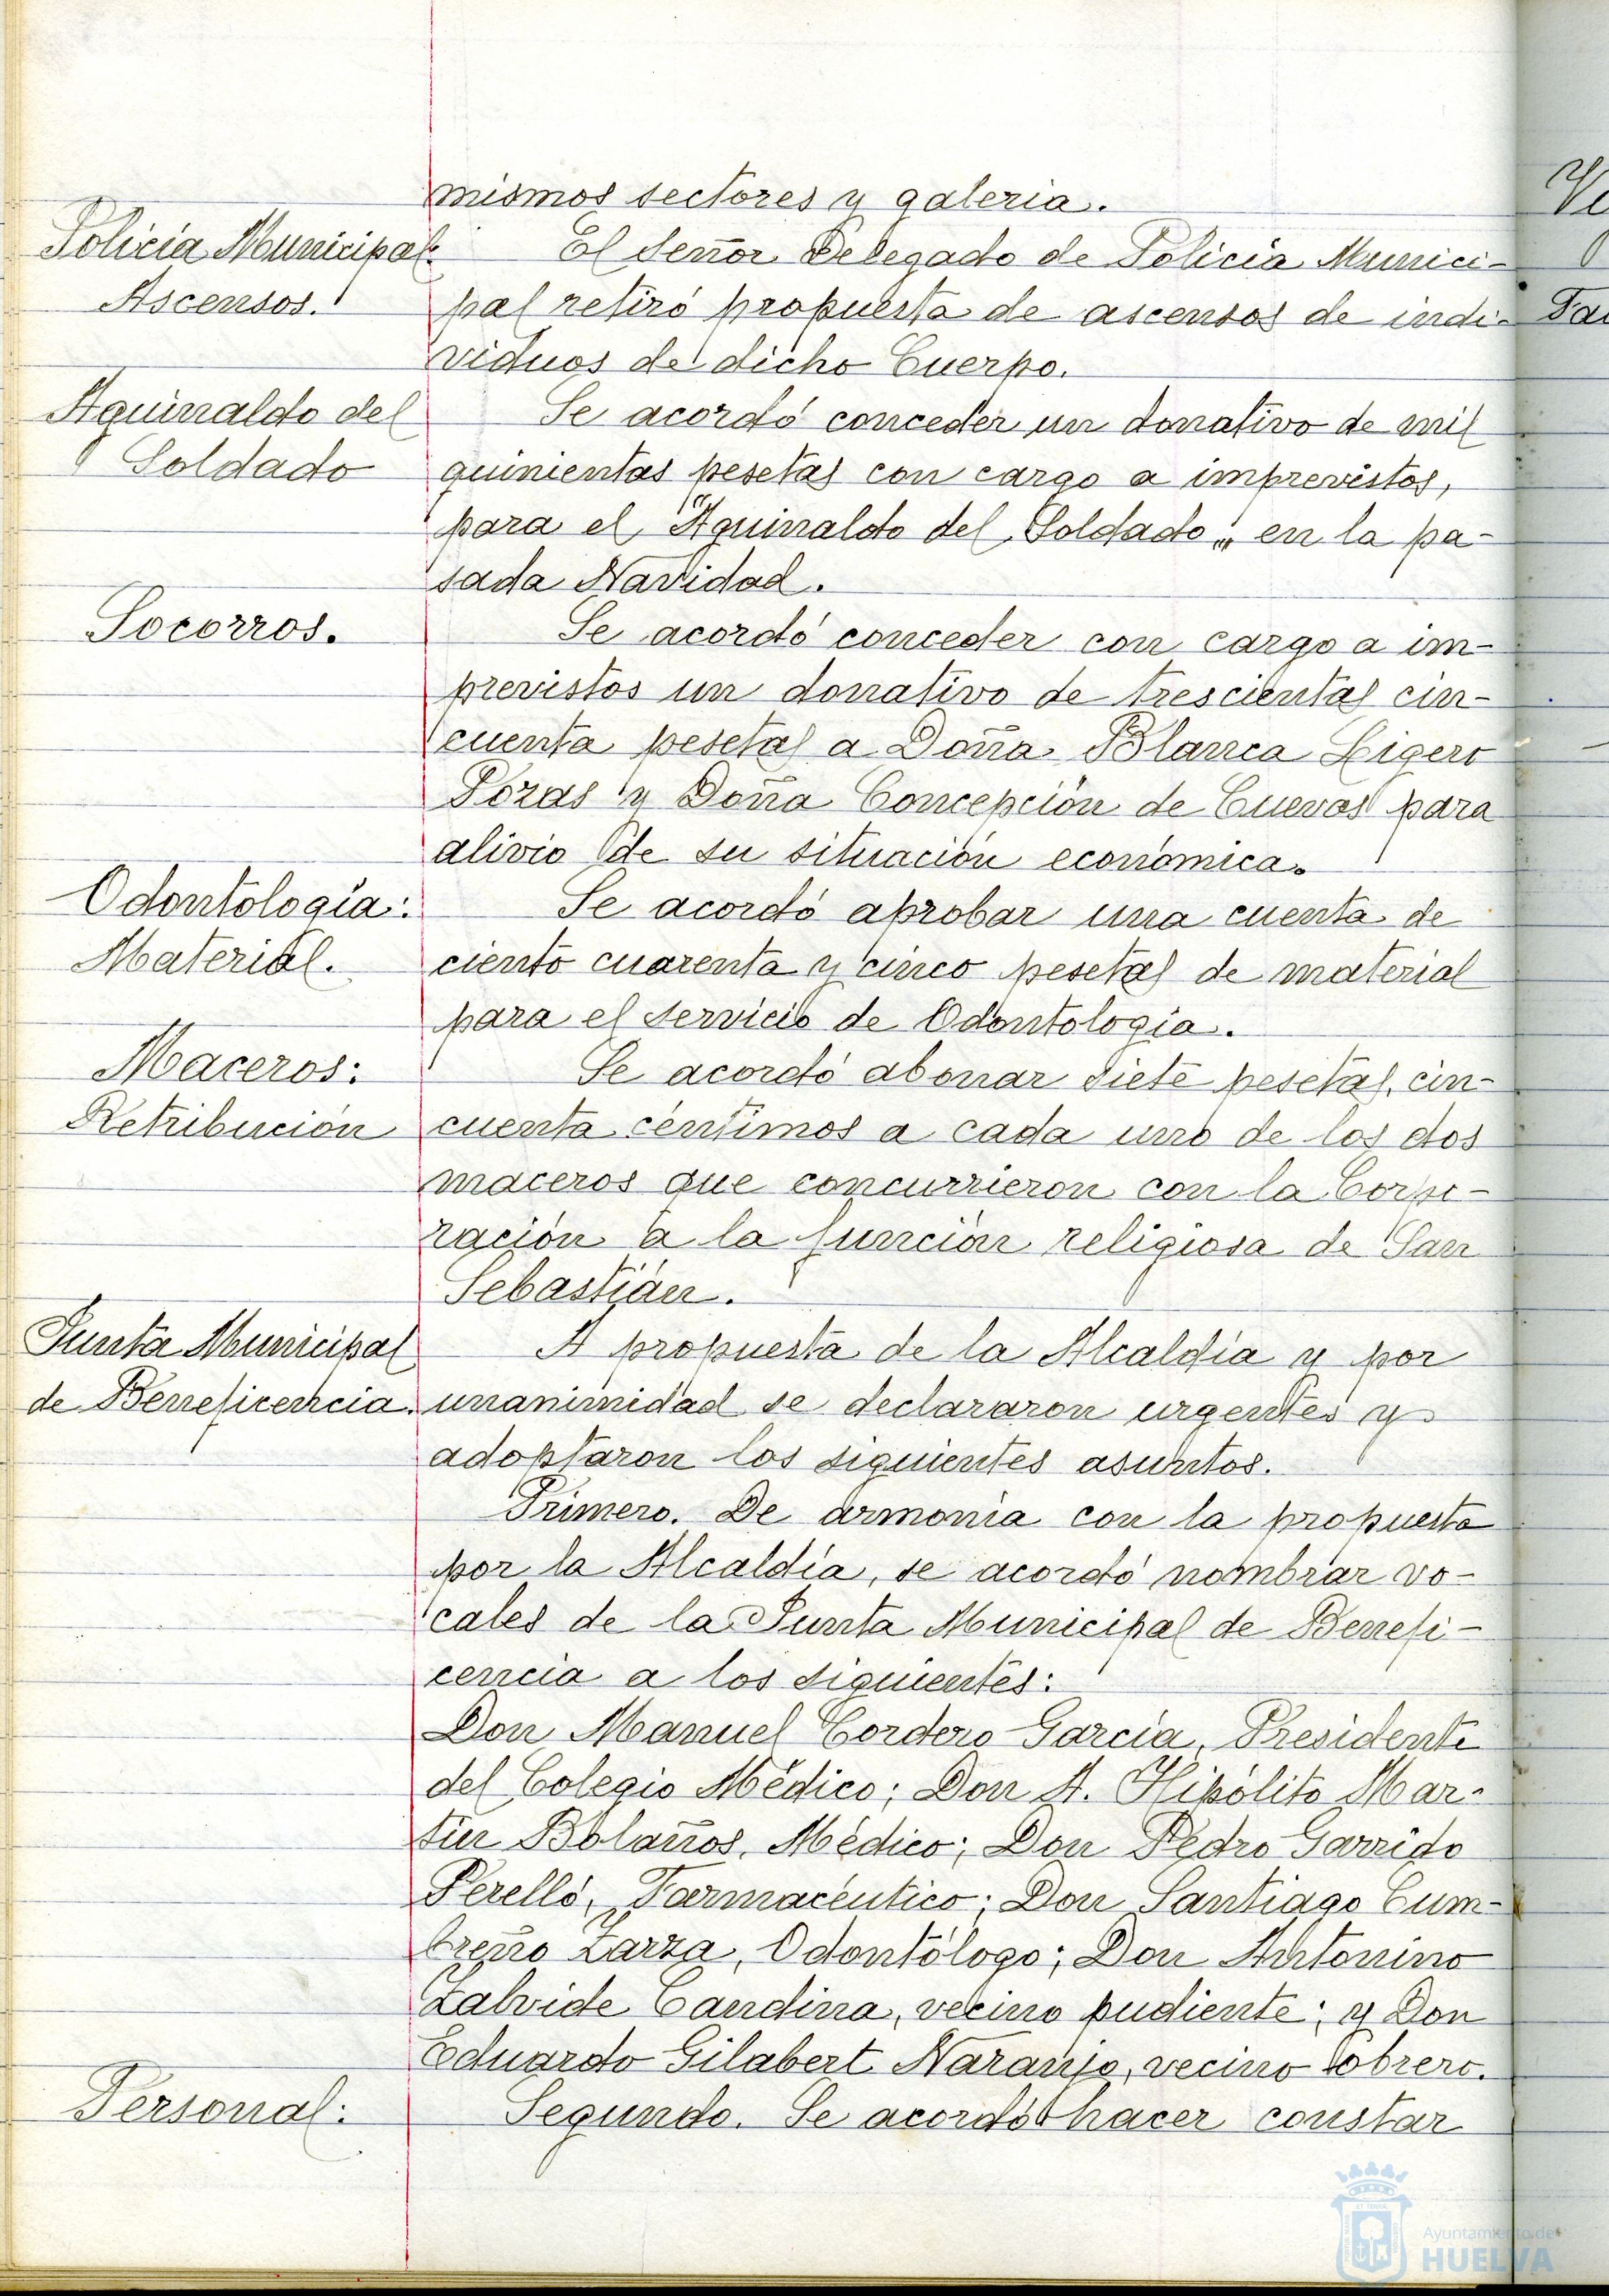 mismos sectores y galeria.
Policía Municipal:
Ascensos.
El Señor Delegado de Policía Munici-
pal retiró propuesta de ascensos de indi-
viduos de dicho Cuerpo.
Aguinaldo del
Soldado
Se acordó conceder un donativo de mil
quinientas pesetas con cargo a imprevistos,
para el "Aguinaldo del Soldado", en la pa-
sada Navidad.
Socorros.
Se acordó conceder con cargo a im-
previstos un donativo de trescientas cin-
cuenta pesetas a Doña Blanca Ligero
Pozas y Doña Concepción de Cuevas para
alivio de su situación económica.
Odontología:
Material.
Se acordó aprobar una cuenta de
ciento cuarenta y cinco pesetas de material
para el servicio de Odontología.
Maceros:
Retribución
Se acordó abonar siete pesetas, cin-
cuenta céntimos a cada uno de los dos
maceros que concurrieron con la Corpo-
ración a la función religiosa de San
Sebastián.
Junta Municipal
de Beneficencia.
A propuesta de la Alcaldía y por
unanimidad se declararon urgentes y
adoptaron los siguientes asuntos.
Primero. De armonía con la propuesta
por la Alcaldía, se acordó nombrar vo-
cales de la Junta Municipal de Benefi-
cencia a los siguientes:
Don Manuel Cordero García, Presidente
del Colegio Médico; Don A. Hipólito Mar-
tín Bolaños, Médico; Don Pedro Garrido
Perelló, Farmacéutico; Don Santiago Cum-
breño Zarza, Odontólogo; Don Antonino
Zalvide Candina, vecino pudiente; y Don
Eduardo Gilabert Naranjo, vecino obrero.
Personal:
Segundo. Se acordó hacer constar
Ayuntamiento de
HUELVA